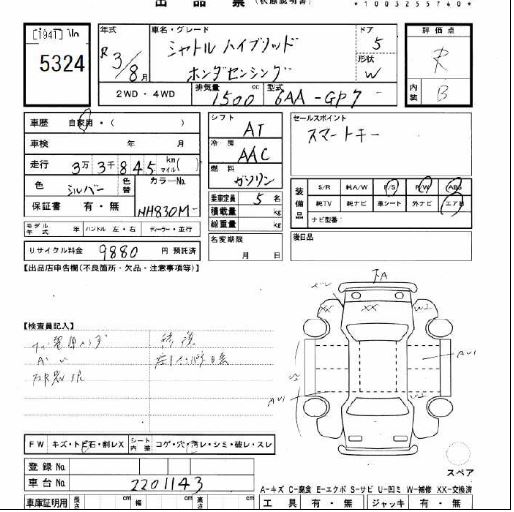 出品票 (状態説明書)
*1003255740*
5324
年式 車名・グレード ドア 評価点
R3/8月 シャトルハイブリッド 5 R
ホンダセンシング 形状 W 内装 B
2WD・4WD 排気量 1500 型式 6AA-GP7
車歴 自家用・( ) シフト AT セールスポイント
車検 年 月 冷房 AAC スマートキー
走行 3万3千845 km マイル( ) 燃料 ガソリン
色 シルバー 色替 カラーNo.
保証書 有・無 NH830M-
乗車定員 5 名
積載量 kg
総重量 kg
装備品 S/R 純A/W P/S P/W ABS
純TV ナビ 革シート 外ナビ エアB
ナビ型番
モデル年式 年 ハンドル 左・右 ディーラー・並行
リサイクル料金 9880 円 預託済
名変期限 月 日
後日品
【出品店申告欄(不良箇所・欠品・注意事項等)】
【検査員記入】
FW キズ・トビ石・割レX シート内装 コゲ・穴・汚レ・シミ・破レ・スレ
登録No
車台No 2201143
車庫証明用 長さ cm 幅 cm 高さ cm
スペア
A-キズ C-腐食 E-エクボ S-サビ U-凹ミ W-補修 XX-交換済
工具 有・無 ジャッキ 有・無